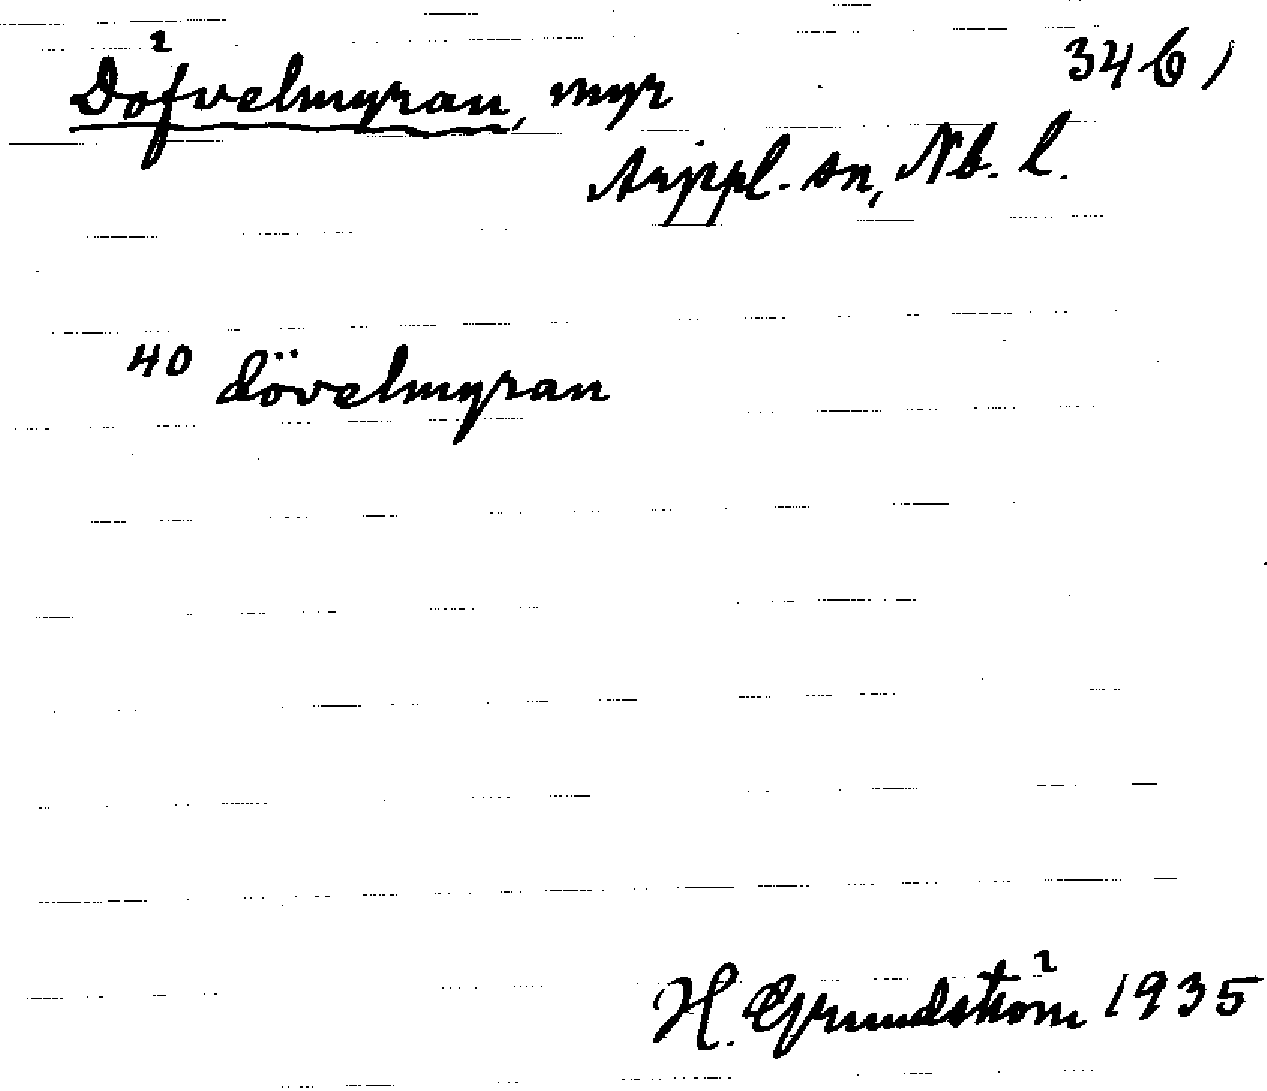 Döfvelmyran, myr 346)
Arjepl. sn, Nb. l.
40 dövelmyran
H. Grundström 1935